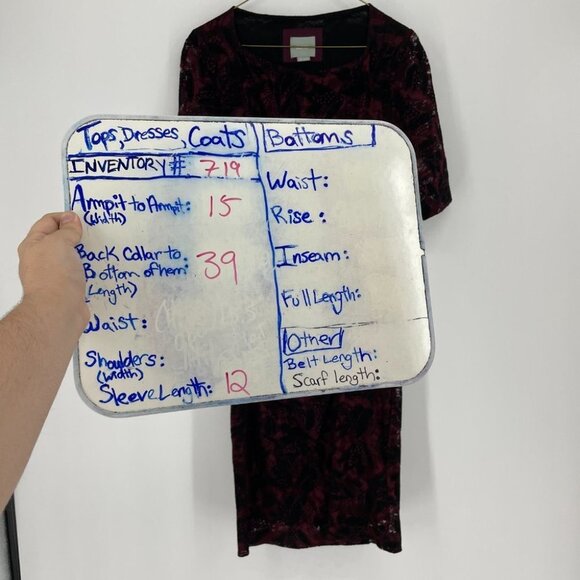 Tops, Dresses, Coats
INVENTORY # 719
Armpit to Armpit: 15
(Width)
Back Collar to
Bottom of hem: 39
(Length)
Waist:
Shoulders:
(width)
Sleeve Length: 12
Bottoms
Waist:
Rise:
Inseam:
Full Length:
Other
Belt Length:
Scarf length: